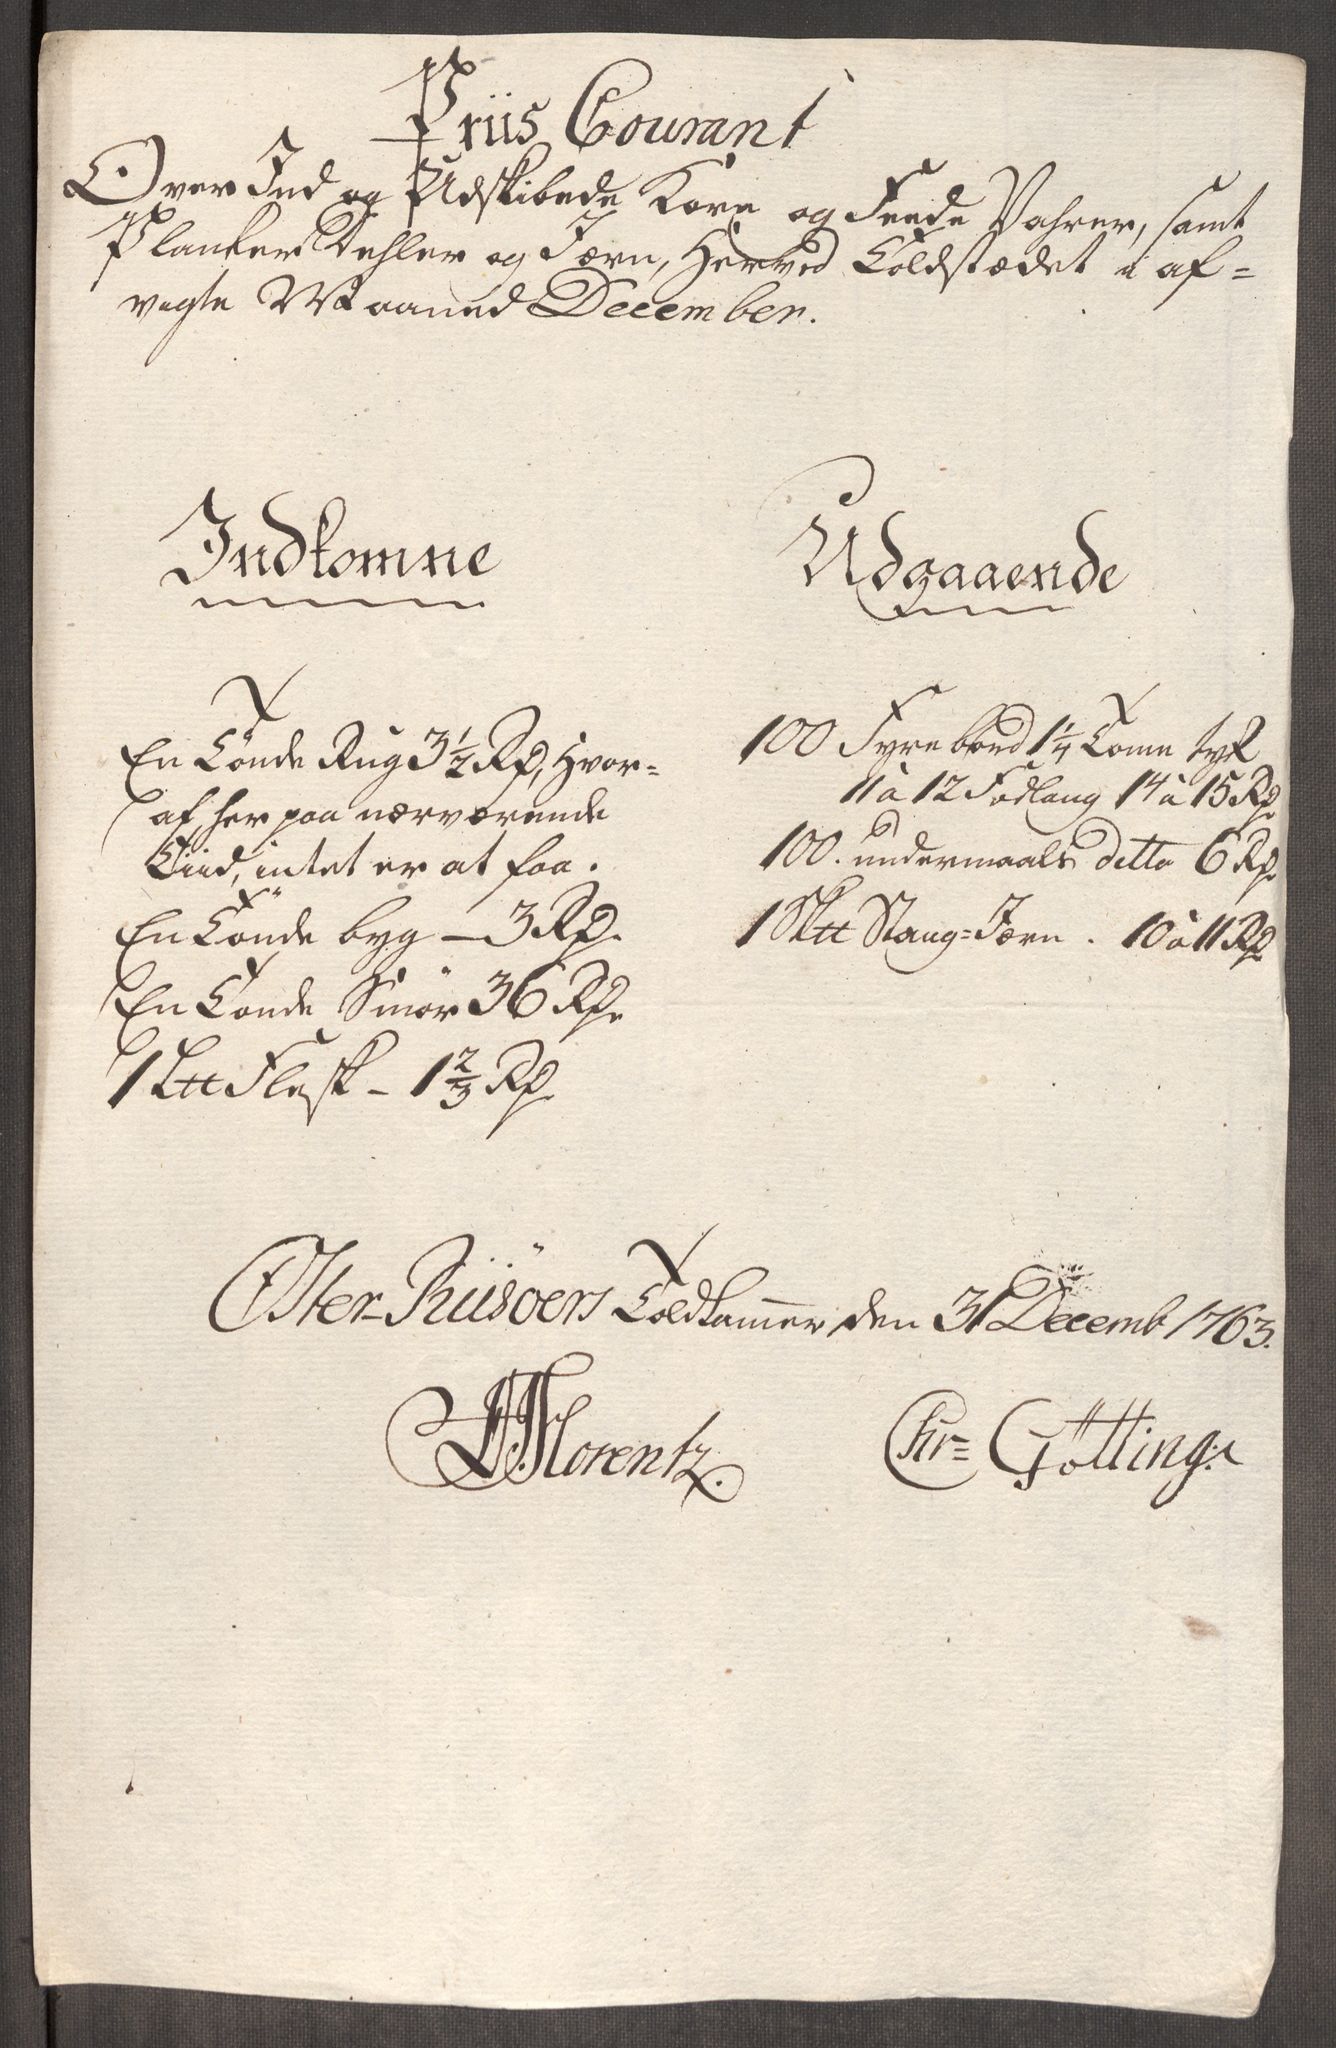 Priis Courant
Over Ind og Udskibede Korn og Feede Vahrer, samt
Planker Dehler og Jærn, Herved Toldstædet i af=
vigte Maaned December.
Indkomne
En Tønde Rug 3 1/2 Rd, Hvor=
af her paa nærværende
Tiid, intet er at faa.
En Tönde byg — 3 Rd.
En Tønde Smör 36 Rd.
1 L℔ Flesk - 1 2/3 Rd.
Udgaaende
100 Fyrrebord 1 1/4 Tome tyk
11 à 12 Fod lang 14 à 15 Rd
100. undermaals ditto 6 Rd.
1 Sk℔ Stang=Jærn. 10 à 11 Rd
Öster-Riisöers Toldkammer den 31 Decemb 1763.
Lorentz.
Chr= Götting.